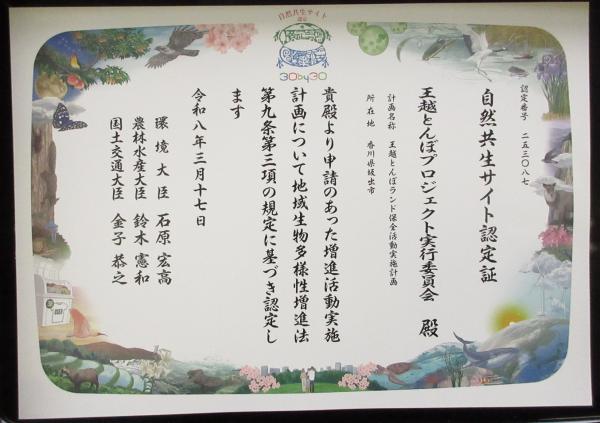 自然共生サイト
認定
30by30
認定番号 二五三〇八七
自然共生サイト認定証
王越とんぼプロジェクト実行委員会 殿
計画名称 王越とんぼランド保全活動実施計画
所在地 香川県坂出市
貴殿より申請のあった増進活動実施
計画について地域生物多様性増進法
第九条第三項の規定に基づき認定し
ます
令和八年三月十七日
環境大臣 石原宏高
農林水産大臣 鈴木憲和
国土交通大臣 金子恭之